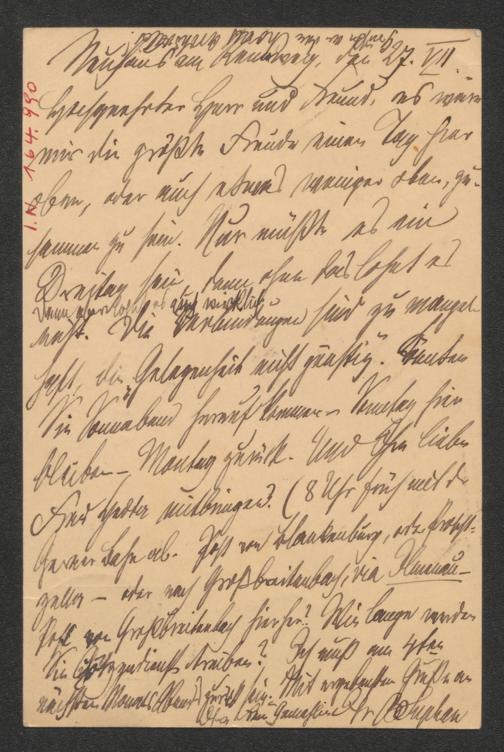 Neuhaus am Rennweg, den 27. VII.
Hochgeehrter Herr und Freund, es wäre
mir die größte Freude einen Tag hier
oben, oder auch etwas weniger oben, zu-
sammen zu sein. Nur müßte es ein
Dreitag sein, denn ohne das lohnt es
nicht. Die Verbindungen sind zu mangel-
haft, die Gelegenheit nicht günstig. Könnten
Sie Sonnabend herauf kommen – Sonntag hier
bleiben – Montag zurück. Und Ihre liebe
Frau mitbringen? (8 Uhr früh mit der
Geraer Bahn ab. Post von Blankenburg, oder
zella – oder nach Großbreitenbach, via Ilmenau –
Post von Großbreitenbach hierher? Wie lange werden
Sie treiben? Ich muß am 4ten
nächsten Monats Abends zurück sein. Mit ergebensten Grüßen an
Ihre Frau Gemahlin Ihr
I.N. 164.990